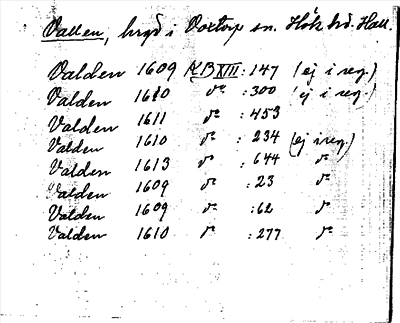 Vallen, by i Voxtorp sn. Hök hd. Hall.
Valden 1609 KB XIII : 147 (ej i reg.)
Valden 1610 do : 300 (ej i reg.)
Valden 1611 do : 453
Valden 1610 do : 234 (ej i reg.)
Valden 1613 do : 644 do
Valden 1609 do : 23 do
Valden 1609 do : 62 do
Valden 1610 do : 277 do